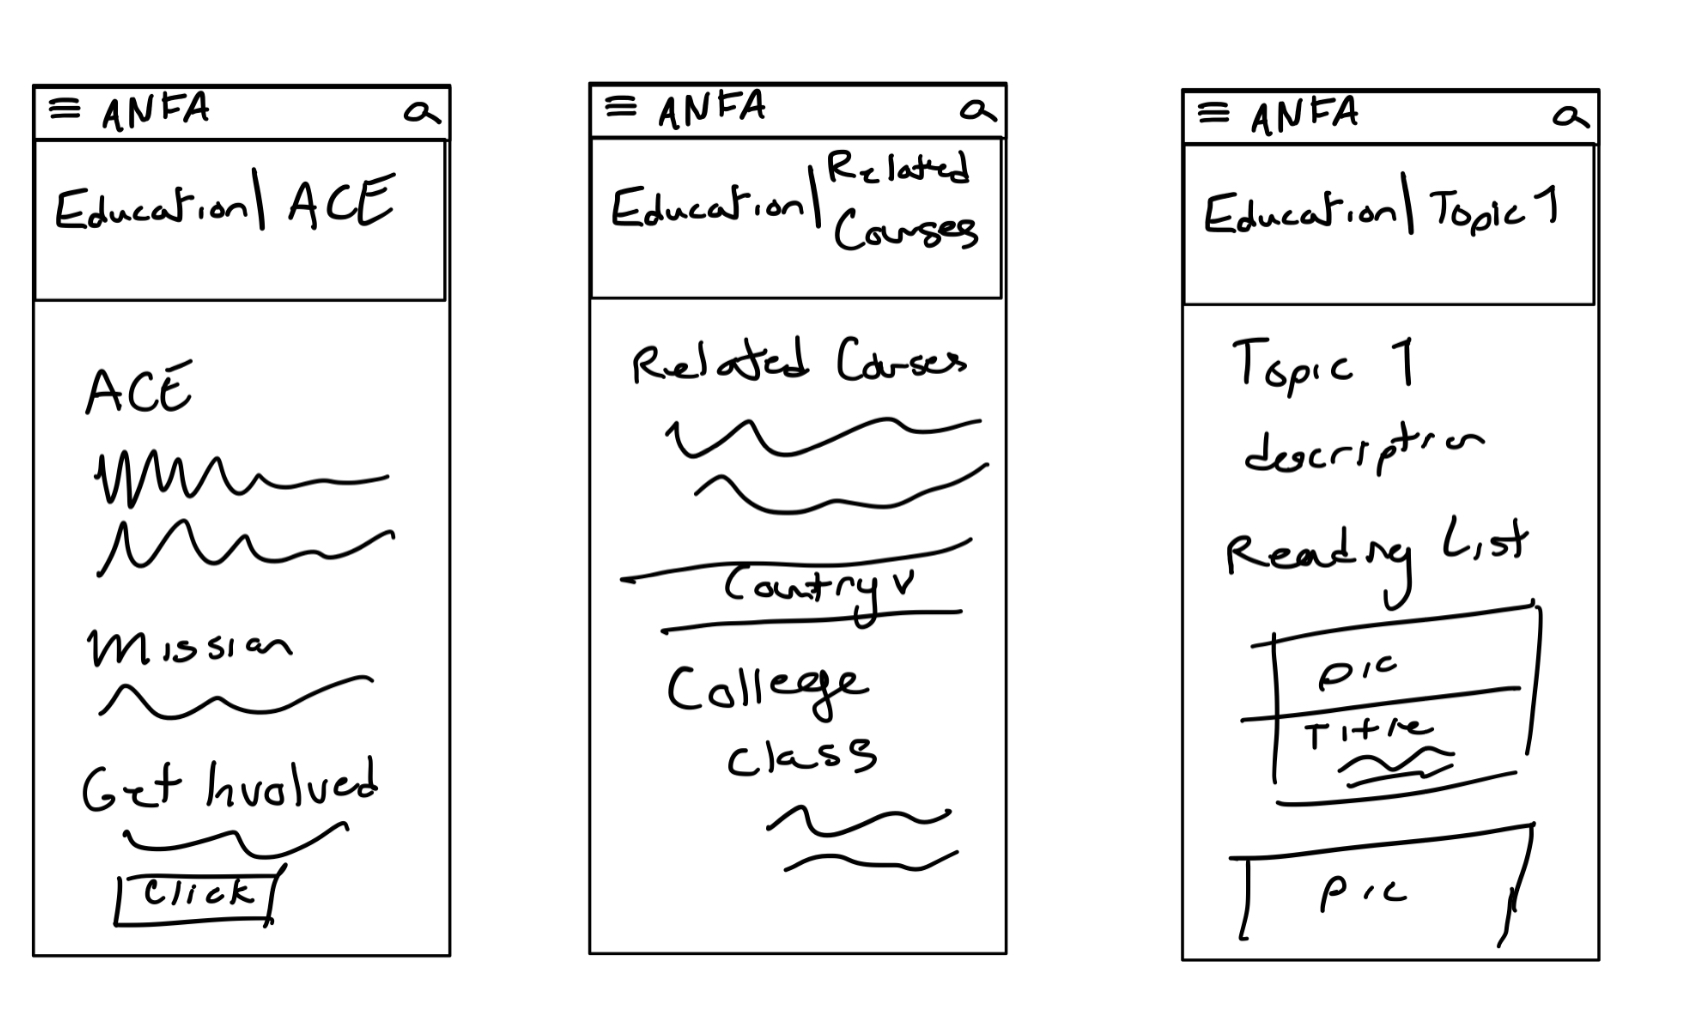 ANFA
Education | ACE
ACE
Mission
Get Involved
Click
ANFA
Education | Related
Courses
Related Courses
Country v
College
class
ANFA
Education | Topic 1
Topic 1
description
Reading List
pic
Title
pic